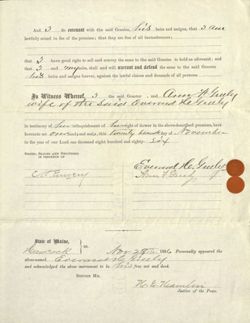 And I do covenant with the said Grantee, his heirs and assigns, that I am
lawfully seized in fee of the premises; that they are free of all incumbrances;
that I have good right to sell and convey the same to the said Grantee to hold as aforesaid; and
that I and my heirs, shall and will warrant and defend the same to the said Grantee,
his heirs and assigns forever, against the lawful claims and demands of all persons
In Witness Whereof, I the said Grantor and Ann F Greely
wife of the said Everard H. Greely
in testimony of her relinquishment of her right of dower in the above-described premises, have
hereunto set our hands and seals, this twenty November
in the year of our Lord one thousand eight hundred and eighty six
Signed, Sealed and Delivered
in presence of
Everard H. Greely
Ann F. Greely
State of Maine,
Hancock ss. Nov 1886 Personally appeared the
above-named Everard H. Greely
and acknowledged the above instrument to be his free act and deed.
Before Me,
H. E. Hamlin
Justice of the Peace.